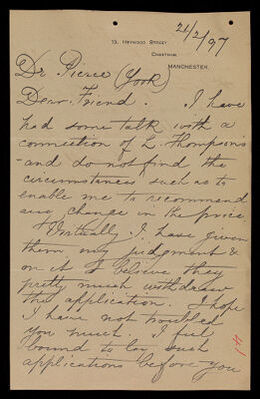 21/2/97
13, Heywood Street,
Cheetham,
Manchester.
Dr Pierce (York)
Dear Friend. I have
had some talk with a
connection of L. Thompson's
- and do not find the
circumstances such as to
enable me to recommend
any change in the price
I have given
them my judgment &
on it I believe they
pretty much withdraw
the application. I hope
I have not troubled
you much. I feel
bound to lay such
applications before you